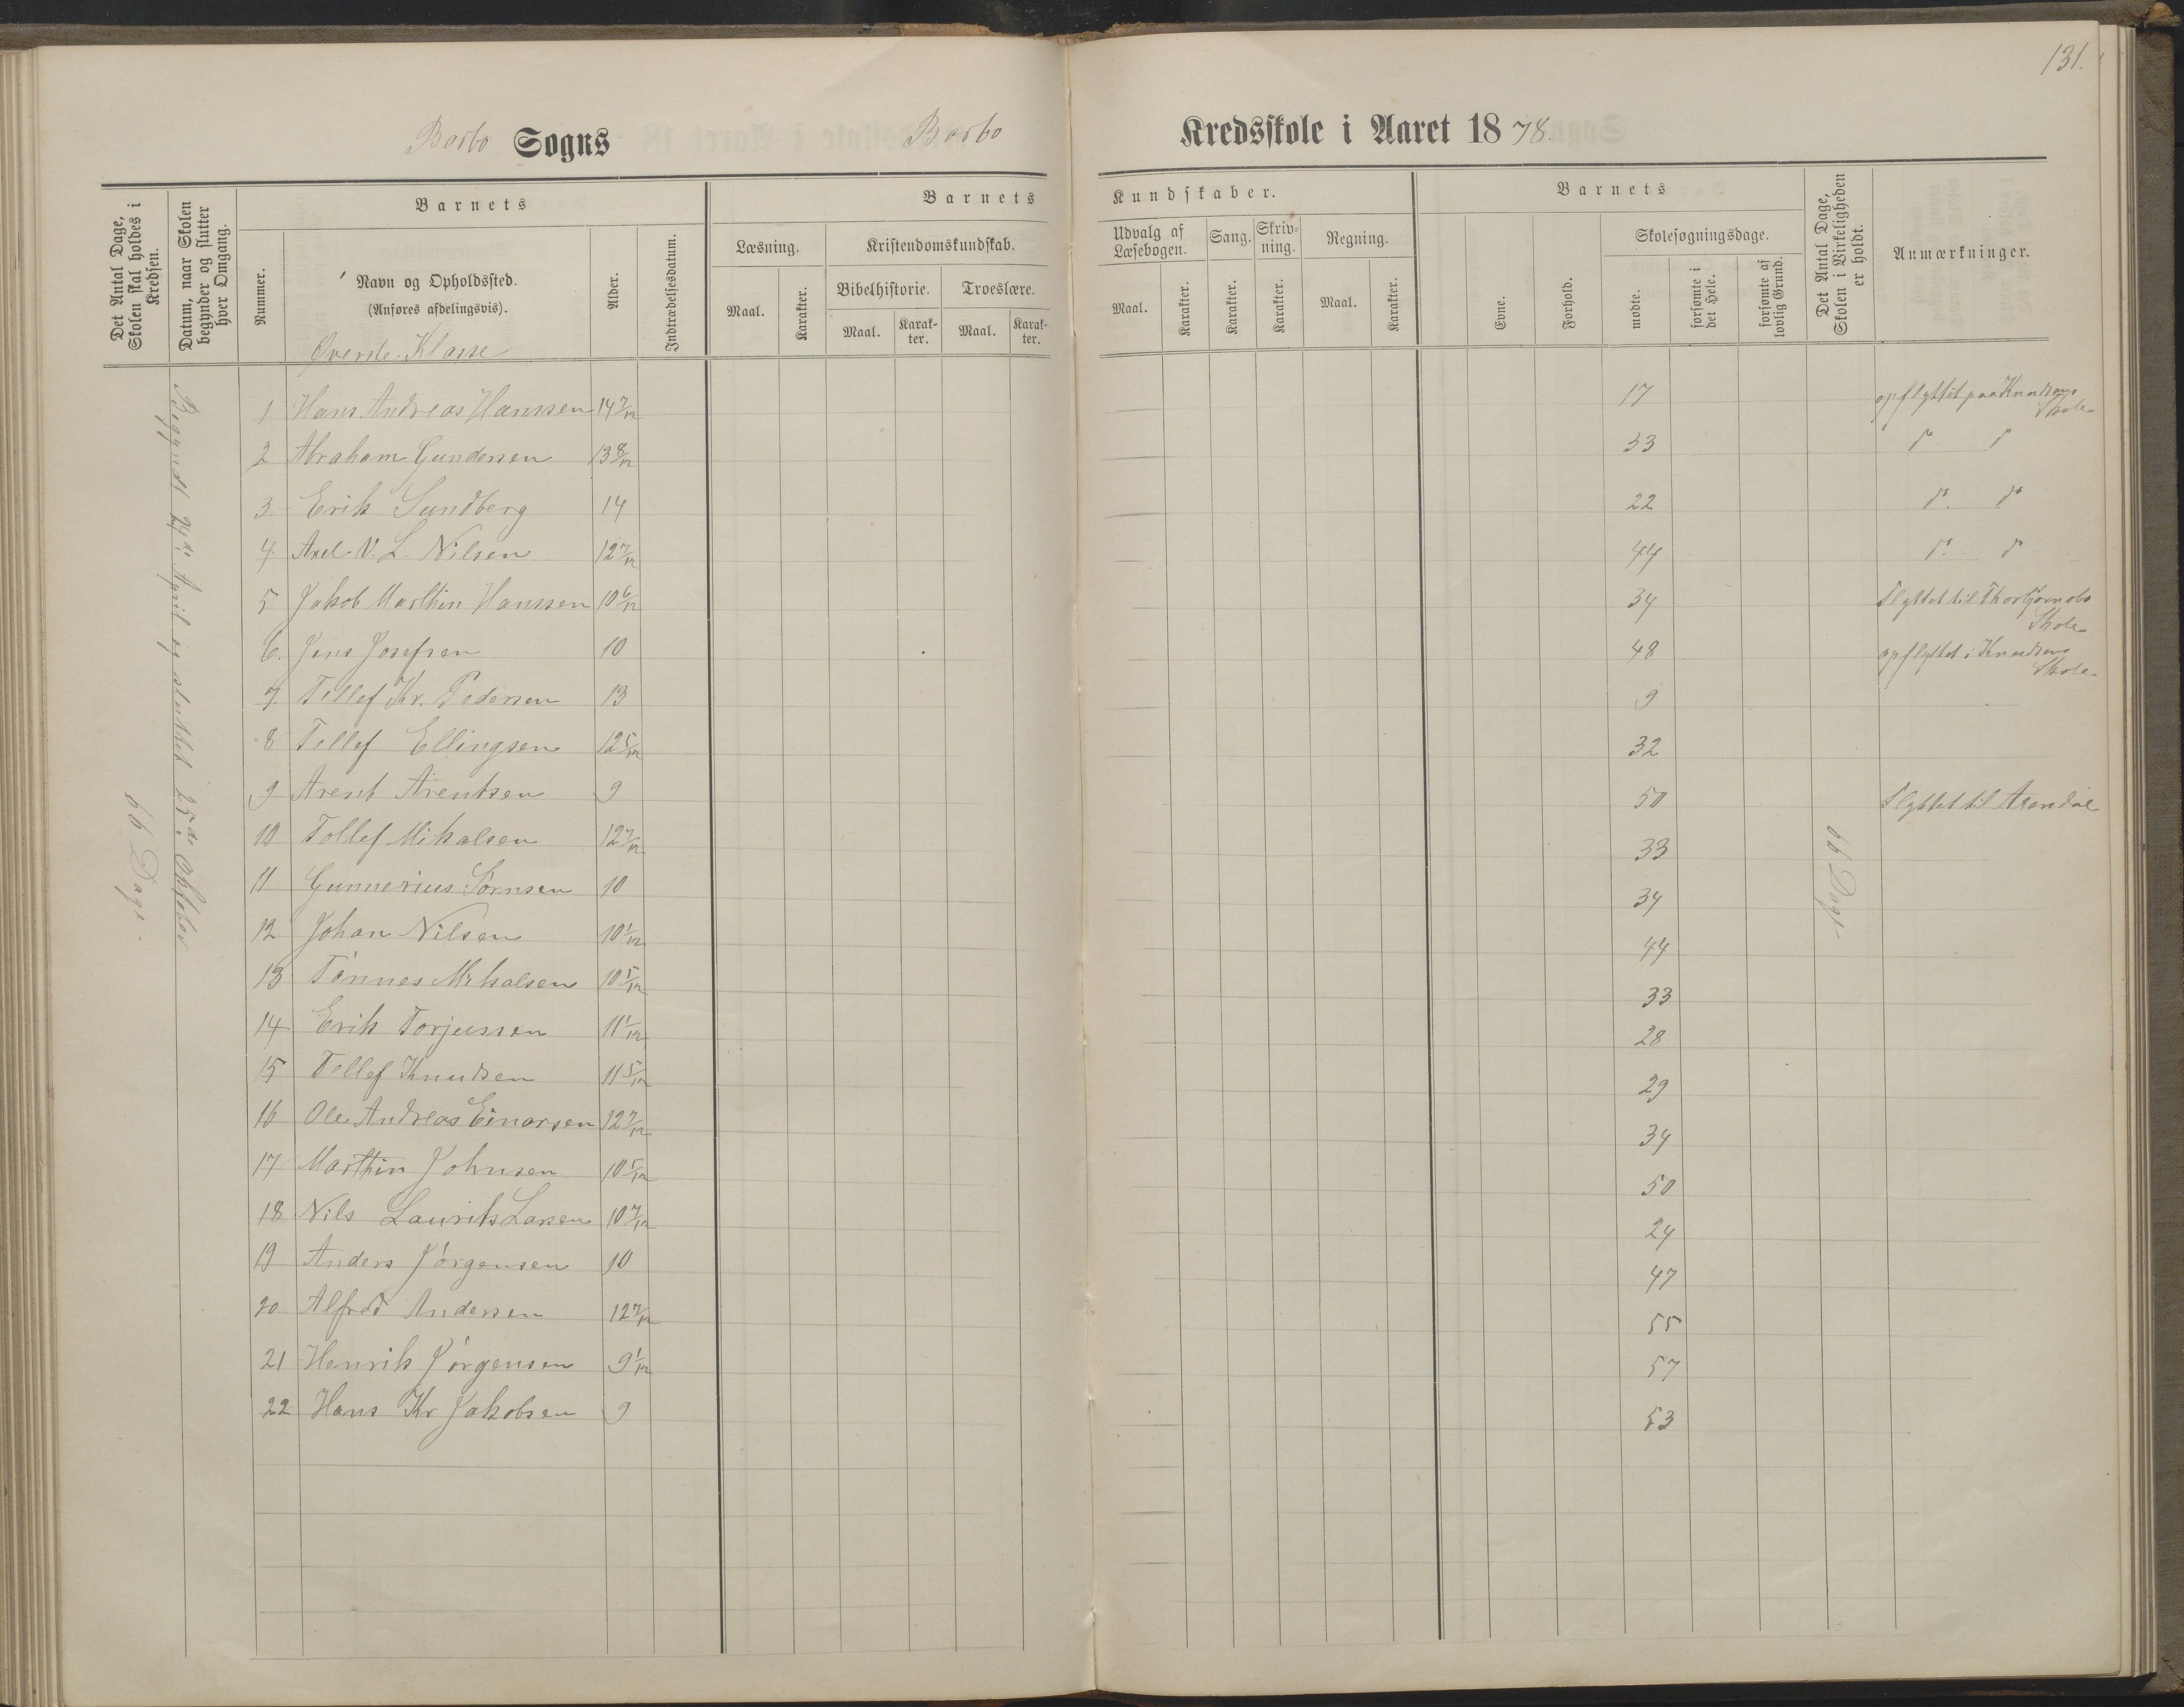 131.
Barbo Sogns Barbo Kredsskole i Aaret 1878.
Det Antal Dage, Skolen skal holdes i Kredsen.
Datum, naar Skolen begynder og slutter hver Omgang.
Barnets
Nummer.
Navn og Opholdssted.
(Anføres afdelingsvis).
Øverste Klasse
Alder.
Indtrædelsesdatum.
Barnets Kundskaber.
Læsning.
Maal.
Karakter.
Kristendomskundskab.
Bibelhistorie.
Maal.
Karak-
ter.
Troeslære.
Maal.
Karak-
ter.
Udvalg af
Læsebogen.
Maal.
Karakter.
Sang.
Karakter.
Skriv-
ning.
Karakter.
Regning.
Maal.
Karakter.
Barnets
Evne.
Forhold.
Skolesøgningsdage.
mødte.
forsømte i
det Hele.
forsømte af
lovlig Grund.
Det Antal Dage,
Skolen i Virkeligheden
er holdt.
Anmærkninger.
66 Dage.
Begyndt 24de April og sluttet 25de Oktober
66 Dage.
1 Hans Andreas Hanssen 14 7/12 17 opflyttet paa Knudsens
Skole
2 Abraham Gundersen 13 8/12 33 do do
3 Erik Sundberg 14 22 do do
4 Axel V. L. Nilsen 12 7/12 44 do do
5 Jakob Marthin Hanssen 10 6/12 34 Flyttet til Thorbjørnsbo
Skole
6. Jens Josefsen 10 48 opflyttet i Knudsens
Skole
7. Tellef Kr. Pedersen 13 9
8 Tellef Ellingsen 12 5/12 32
9 Arent Arentsen 9 50 Flyttet til Arendal
10 Tollef Mikalsen 12 7/12 33
11 Gunnerius Sørnsen 10 34
12 Johan Nilsen 10 1/12 44
13 Tønnes Mikalsen 10 5/12 33
14 Erik Torjussen 11 1/12 28
15 Tellef Knudsen 11 5/12 29
16 Ole Andreas Einarsen 12 7/12 34
17 Marthin Johnsen 10 5/12 50
18 Nils Laurits Larsen 10 7/12 24
19 Anders Jørgensen 10 47
20 Alfred Andersen 12 7/12 55
21 Henrik Jørgensen 9 1/12 57
22 Hans Kr Jakobsen 9 53